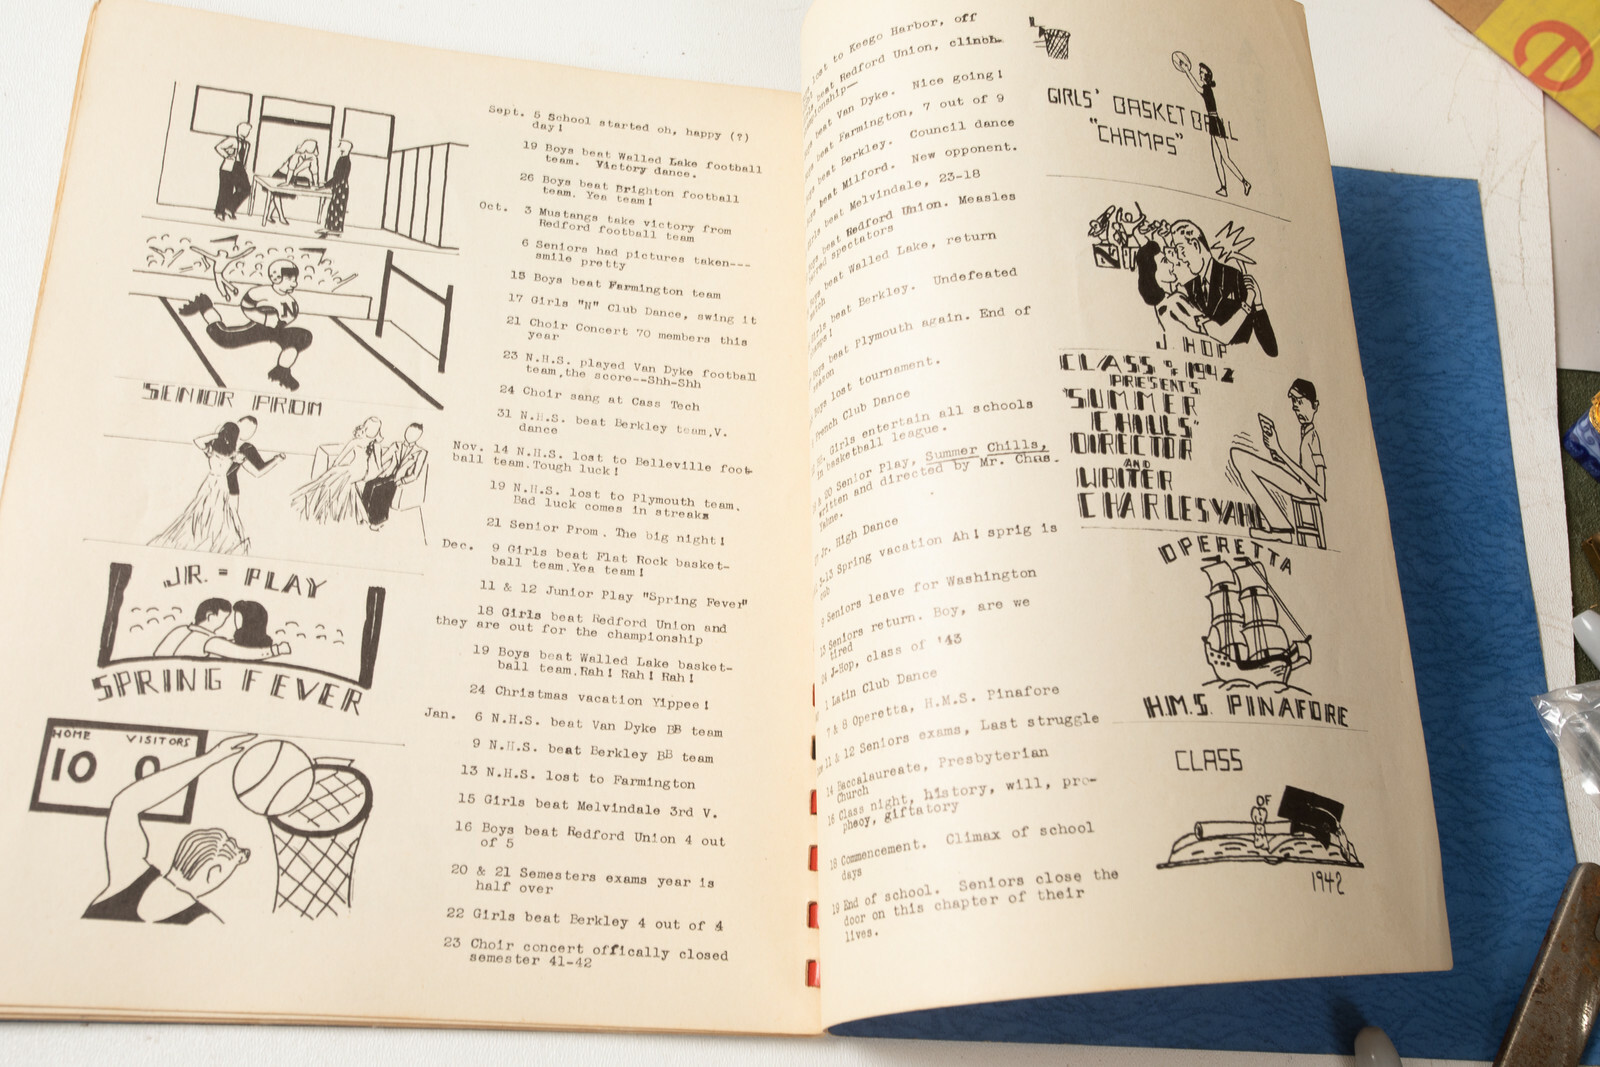 Sept. 5 School started oh, happy (?)
day!
19 Boys beat Walled Lake football
team. Victory dance.
26 Boys beat Brighton football
team. Yea team!
Oct. 3 Mustangs take victory from
Redford football team
6 Seniors had pictures taken---
smile pretty
15 Boys beat Farmington team
17 Girls "N" Club Dance, swing it
21 Choir Concert 70 members this
year
23 N.H.S. played Van Dyke football
team,the score--Shh-Shh
24 Choir sang at Cass Tech
31 N.H.S. beat Berkley team.V.
dance
Nov. 14 N.H.S. lost to Belleville foot-
ball team.Tough luck!
19 N.H.S. lost to Plymouth team.
Bad luck comes in streaks
21 Senior Prom. The big night!
Dec. 9 Girls beat Flat Rock basket-
ball team.Yea team!
11 & 12 Junior Play "Spring Fever"
18 Girls beat Redford Union and
they are out for the championship
19 Boys beat Walled Lake basket-
ball team.Rah! Rah! Rah!
24 Christmas vacation Yippee!
Jan. 6 N.H.S. beat Van Dyke BB team
9 N.H.S. beat Berkley BB team
13 N.H.S. lost to Farmington
15 Girls beat Melvindale 3rd V.
16 Boys beat Redford Union 4 out
of 5
20 & 21 Semesters exams year is
half over
22 Girls beat Berkley 4 out of 4
23 Choir concert offically closed
semester 41-42
N
SENIOR PROM
JR. = PLAY
SPRING FEVER
HOME VISITORS
10 0
lost to Keego Harbor, off
beat Redford Union, clinch-
beat Van Dyke. Nice going!
beat Farmington, 7 out of 9
beat Berkley. Council dance
beat Milford. New opponent.
beat Melvindale, 23-18
beat Redford Union. Measles
spectators
beat Walled Lake, return
beat Berkley. Undefeated
beat Plymouth again. End of
season
Boys lost tournament.
French Club Dance
Girls entertain all schools
in basketball league.
& 20 Senior Play, Summer Chills,
written and directed by Mr. Chas.
Jr. High Dance
Spring vacation Ah! sprig is
Seniors leave for Washington
Seniors return. Boy, are we
tired
24 J-Hop, class of '43
1 Latin Club Dance
7 & 8 Operetta, H.M.S. Pinafore
11 & 12 Seniors exams, Last struggle
14 Baccalaureate, Presbyterian
Church
16 Class night, history, will, pro-
phecy, giftatory
18 Commencement. Climax of school
days
19 End of school. Seniors close the
door on this chapter of their
lives.
GIRLS' BASKETBALL
"CHAMPS"
N
J. HOP
CLASS OF 1942
PRESENTS
"SUMMER
CHILLS"
DIRECTOR
AND
WRITER
CHARLES YAHNE
OPERETTA
H.M.S. PINAFORE
CLASS
OF
1942